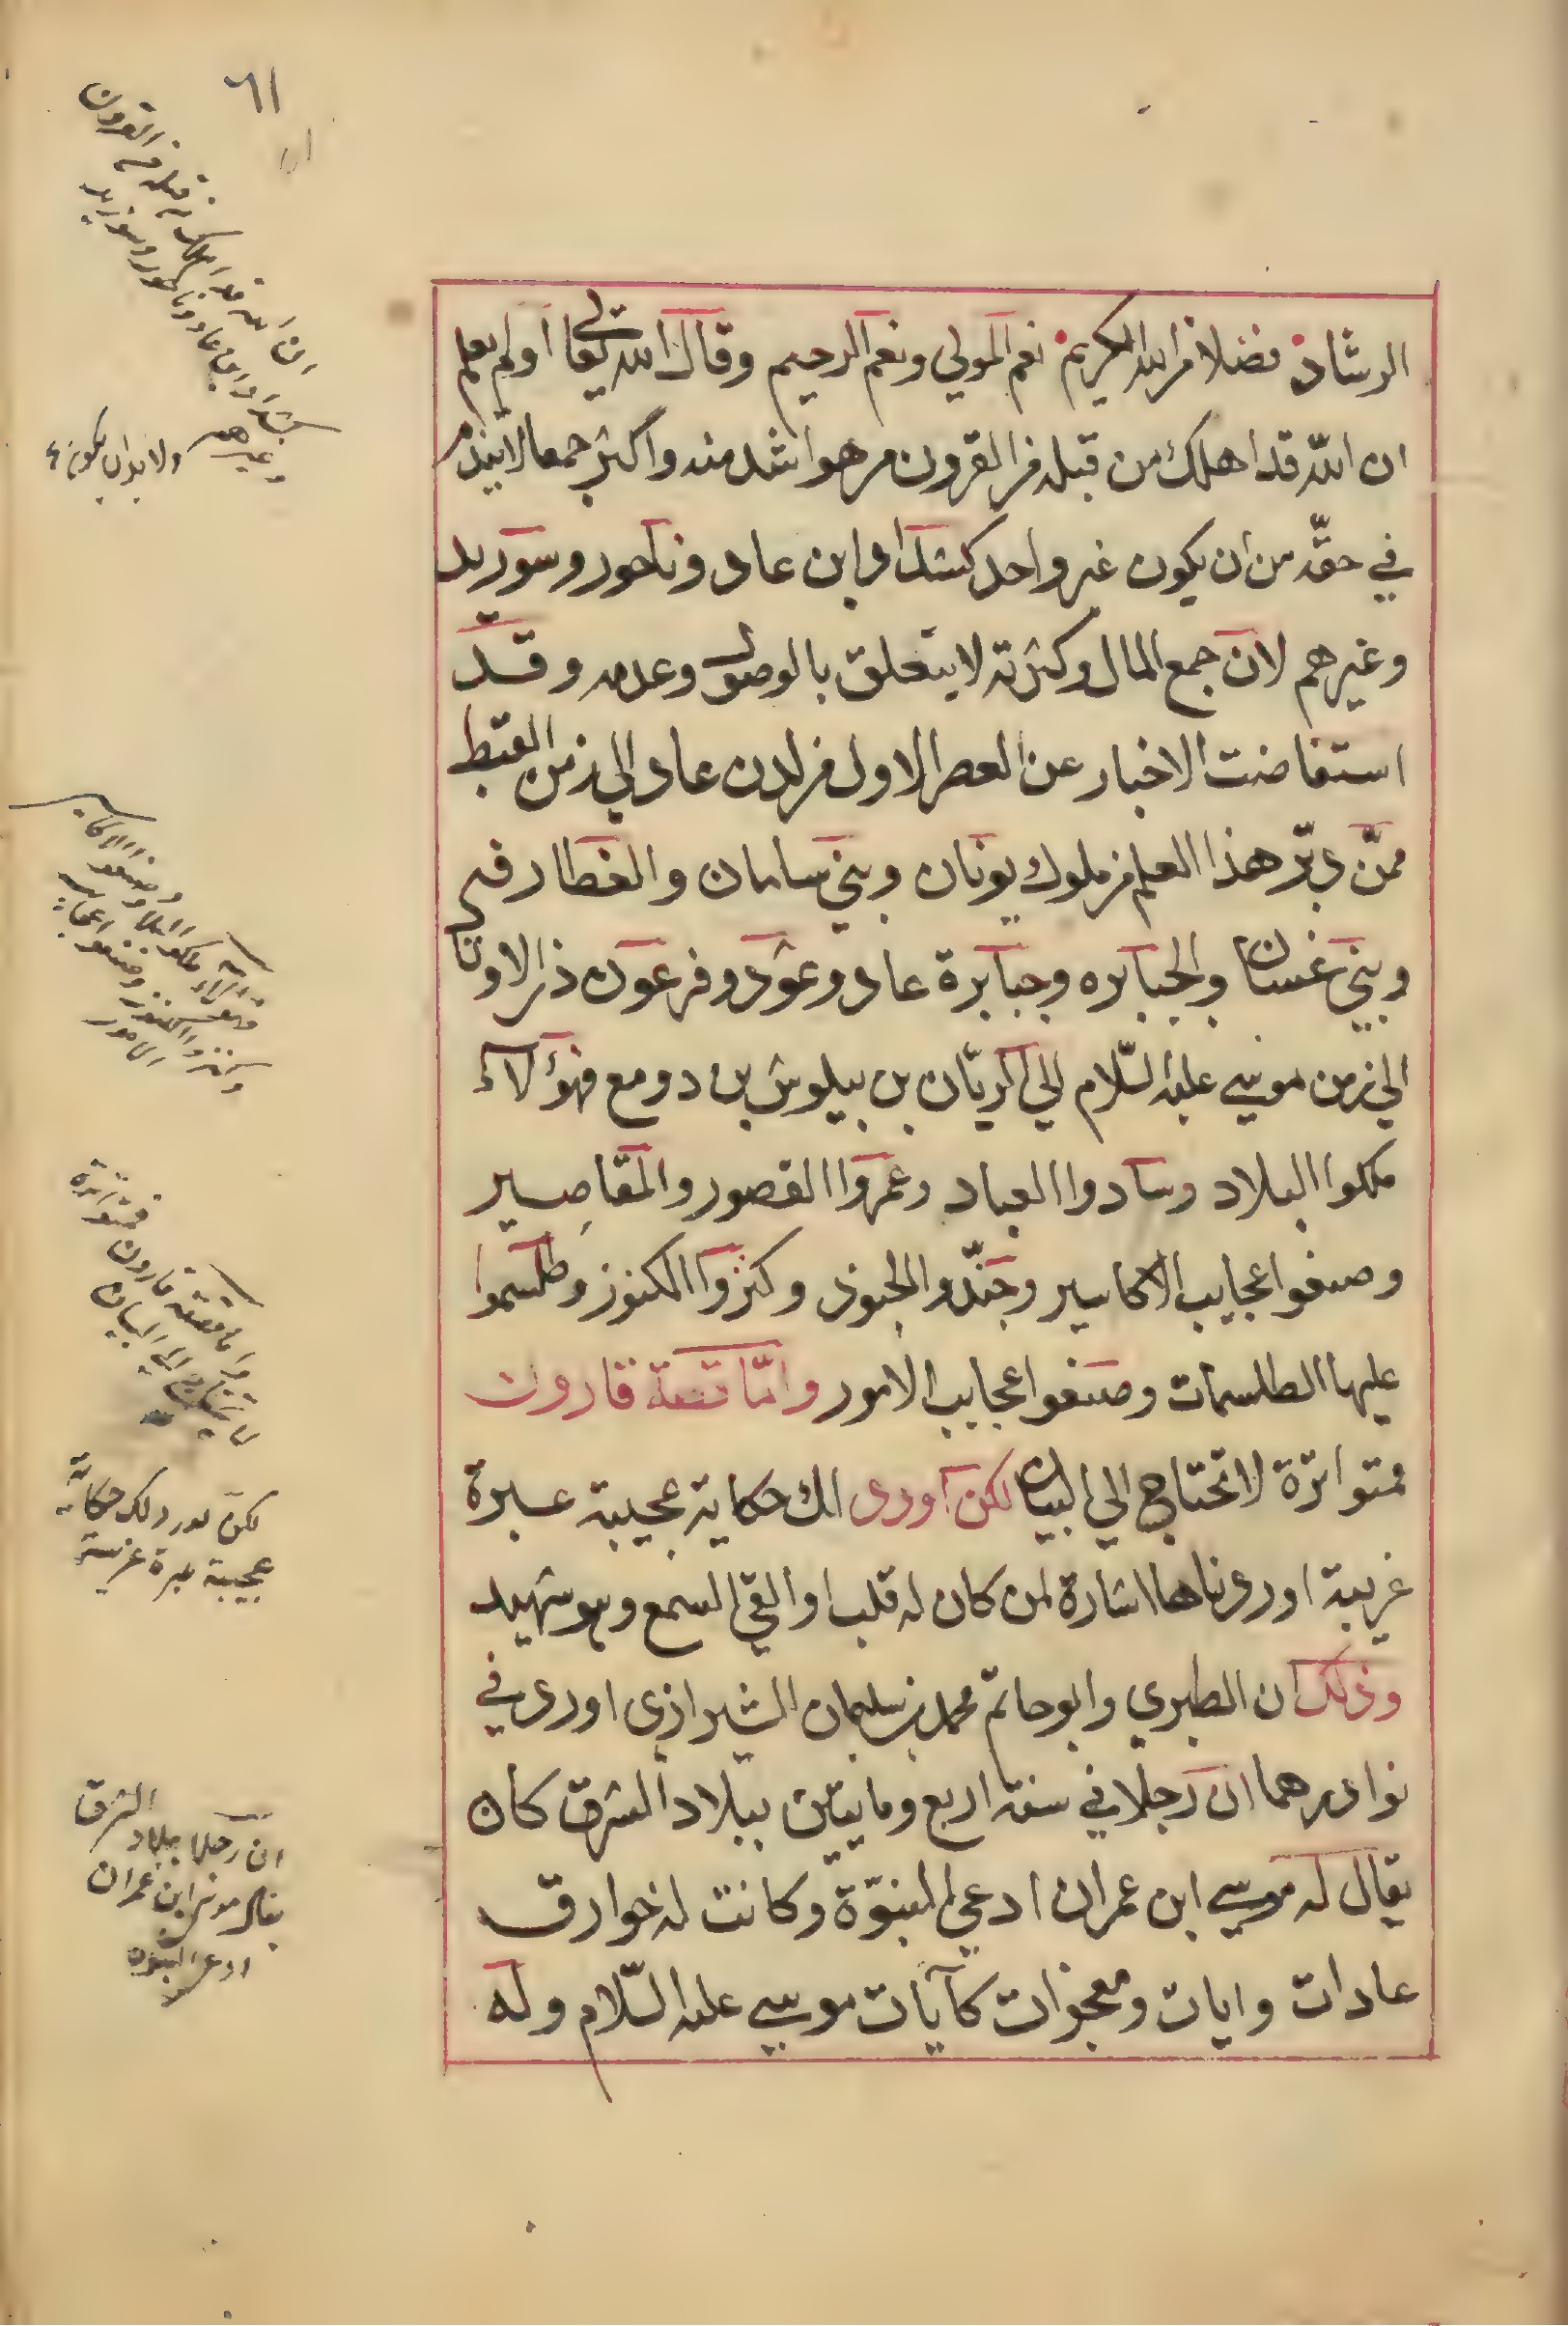 ٦١
الرشاد فضلا من الله الكريم نعم المولي ونعم الرحيم وقال الله تعالي اولم يعلم
ان الله قد اهلك من قبله من القرون من هو اشد منه واكثر جمعا لابد
في حقه من ان يكون غير واحد كشداد ابن عاد وناحور وسوريد
وغيرهم لان جمع المال وكثرته لا يتعلق بالوصول وعدمه وقد
استفاضت الاخبار عن العصر الاول من لدن عاد الي زمن القبط
ممن دبر هذا العلم من ملوك يونان وبني سامان والغطارفه
وبني غسان والجبابره وجبابرة عاد وثمود وفرعون ذي الاوتاد
الي زمن موسي عليه السلام الي الريان بن بيلوش بن دومع فهؤلاء
ملكوا البلاد وسادوا العباد وعمروا القصور والمقاصير
وصنفوا عجايب الاكاسير وجندوا الجنود وكنزوا الكنوز وطلسموا
عليها الطلسمات وصنفوا عجايب الامور واما قصة قارون
متواترة لا تحتاج الي البيان لكن اورد لك حكاية عجيبة عبرة
غريبة اوردناها اشارة لمن كان له قلب او القي السمع وهو شهيد
وذلك ان الطبري وابو حاتم محمد بن سليمان الشيرازي اورد في
نوادرهما ان رجلا في سنة اربع ومايتين ببلاد الشرق كان
يقال له موسي ابن عمران ادعي النبوة وكانت له خوارق
عادات وايات ومعجزات كآيات موسي عليه السلام وله
ان الله قد اهلك من قبله من القرون
كشداد ابن عاد وناحور وسوريد
وغيرهم ولا بد ان يكون
ملكوا البلاد وصنعوا الاكاسير
وكنزوا الكنوز وصنفوا عجايب
الامور
واما قصة قارون فمتواترة
لا يحتاج الي البيان
لكن نورد لك حكاية
عجيبة عبرة غريبة
ان رجلا ببلاد الشرق
يقال له موسي ابن عمران
ادعي النبوة